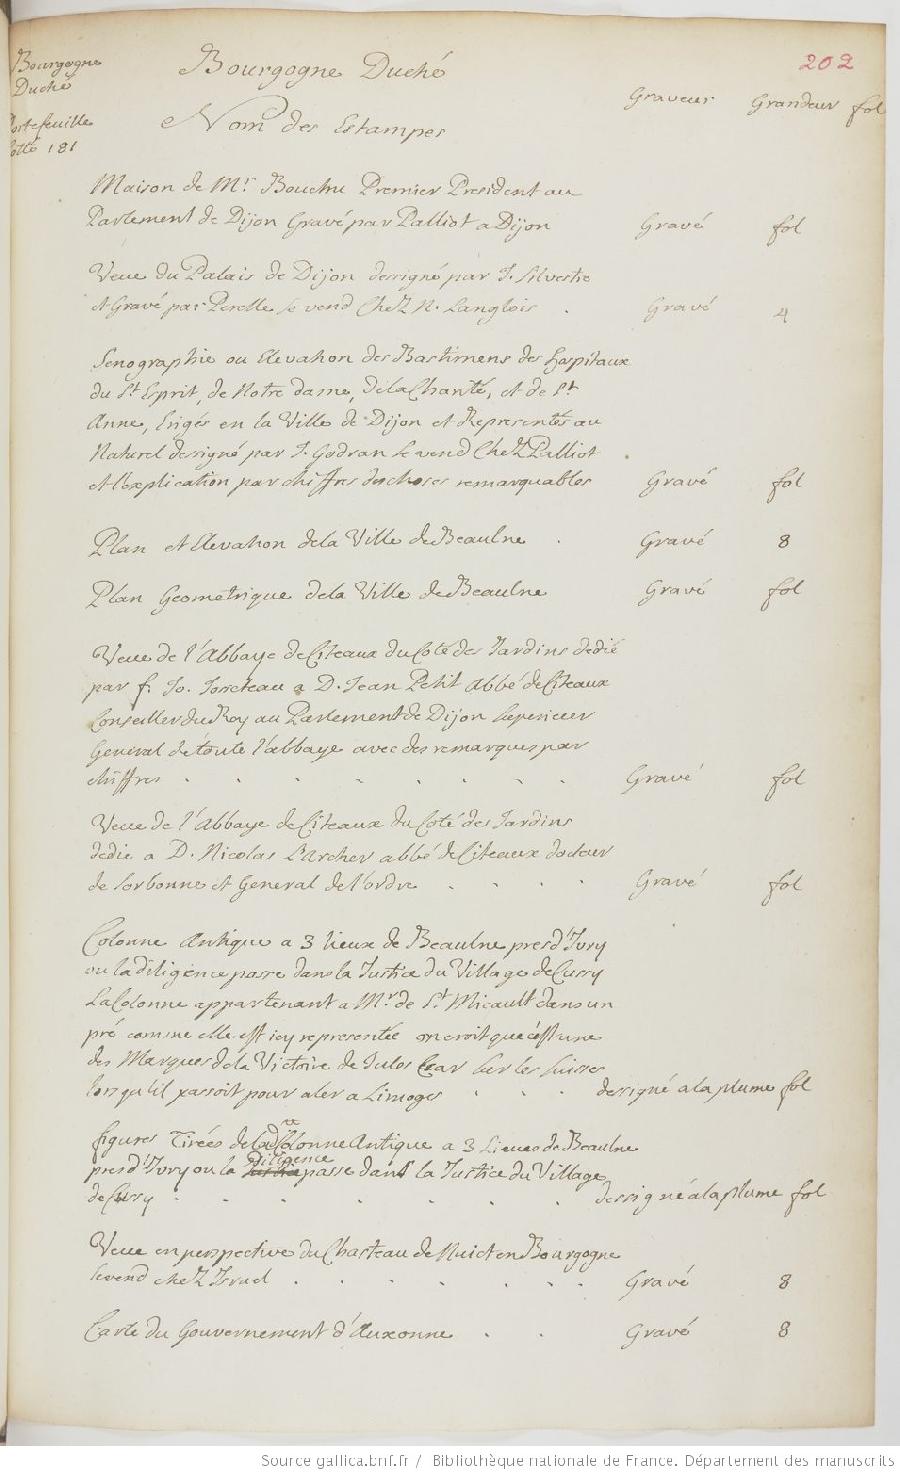 Bourgogne
Duché
Portefeuille
Cotté 181
Bourgogne Duché
202
Nom des Estampes
Graveur Grandeur fol
Maison de Mr. Bouchu Premier President au
Parlement de Dijon Gravé par Palliot a Dijon Gravé fol
Veue du Palais de Dijon dessigné par J. Silvestre
et Gravé par Perelle se vend Chez N. Langlois . Gravé 4
Senographie ou Elevation des Bastimens des hospitaux
du St. Esprit, de Notre dame, de la Charité, et de St.
Anne, Erigés en la Ville de Dijon et Representés au
Naturel dessigné par J. Godran se vend Chez Palliot
et l'explication par chiffres des choses remarquables Gravé fol
Plan et Elevation de la Ville de Beaulne . Gravé 8
Plan Geometrique de la Ville de Beaulne Gravé fol
Veue de l'Abbaye de Citeaux du Coté des Jardins dedié
par f. Jo. a D. Jean Petit Abbé de Citeaux
Conseiller du Roy au Parlement de Dijon Superieur
General de toute l'abbaye avec des remarques par
chiffres . . . . . . . Gravé fol
Veue de l'Abbaye de Citeaux du Coté des Jardins
dedié a D. Nicolas l'Archer abbé de Citeaux docteur
de Sorbonne et General de l'ordre . . . . Gravé fol
Colonne Antique a 3 lieux de Beaulne pres d'Ivry
ou la diligence passe dans la Justice du Village de Cussy
La Colonne appartenant a Mr. de St. Micault dans un
pré comme elle est icy representée on croit que c'est une
des Marques de la Victoire de Jules Cesar sur les Suisses
lorsqu'il passoit pour aler a Limoges . . . dessigné a la plume fol
figures Tirées de la de Colonne Antique a 3 Lieues de Beaulne
pres d'Ivry ou la diligence passe dans la Justice du Village
de Cussy . . . . . . . . dessigné a la plume fol
Veue en perspective du Chasteau de Nuict en Bourgogne
se vend chez Israel . . . . . . . Gravé 8
Carte du Gouvernement d'Auxonne . . Gravé 8
Source gallica.bnf.fr / Bibliothèque nationale de France. Département des manuscrits